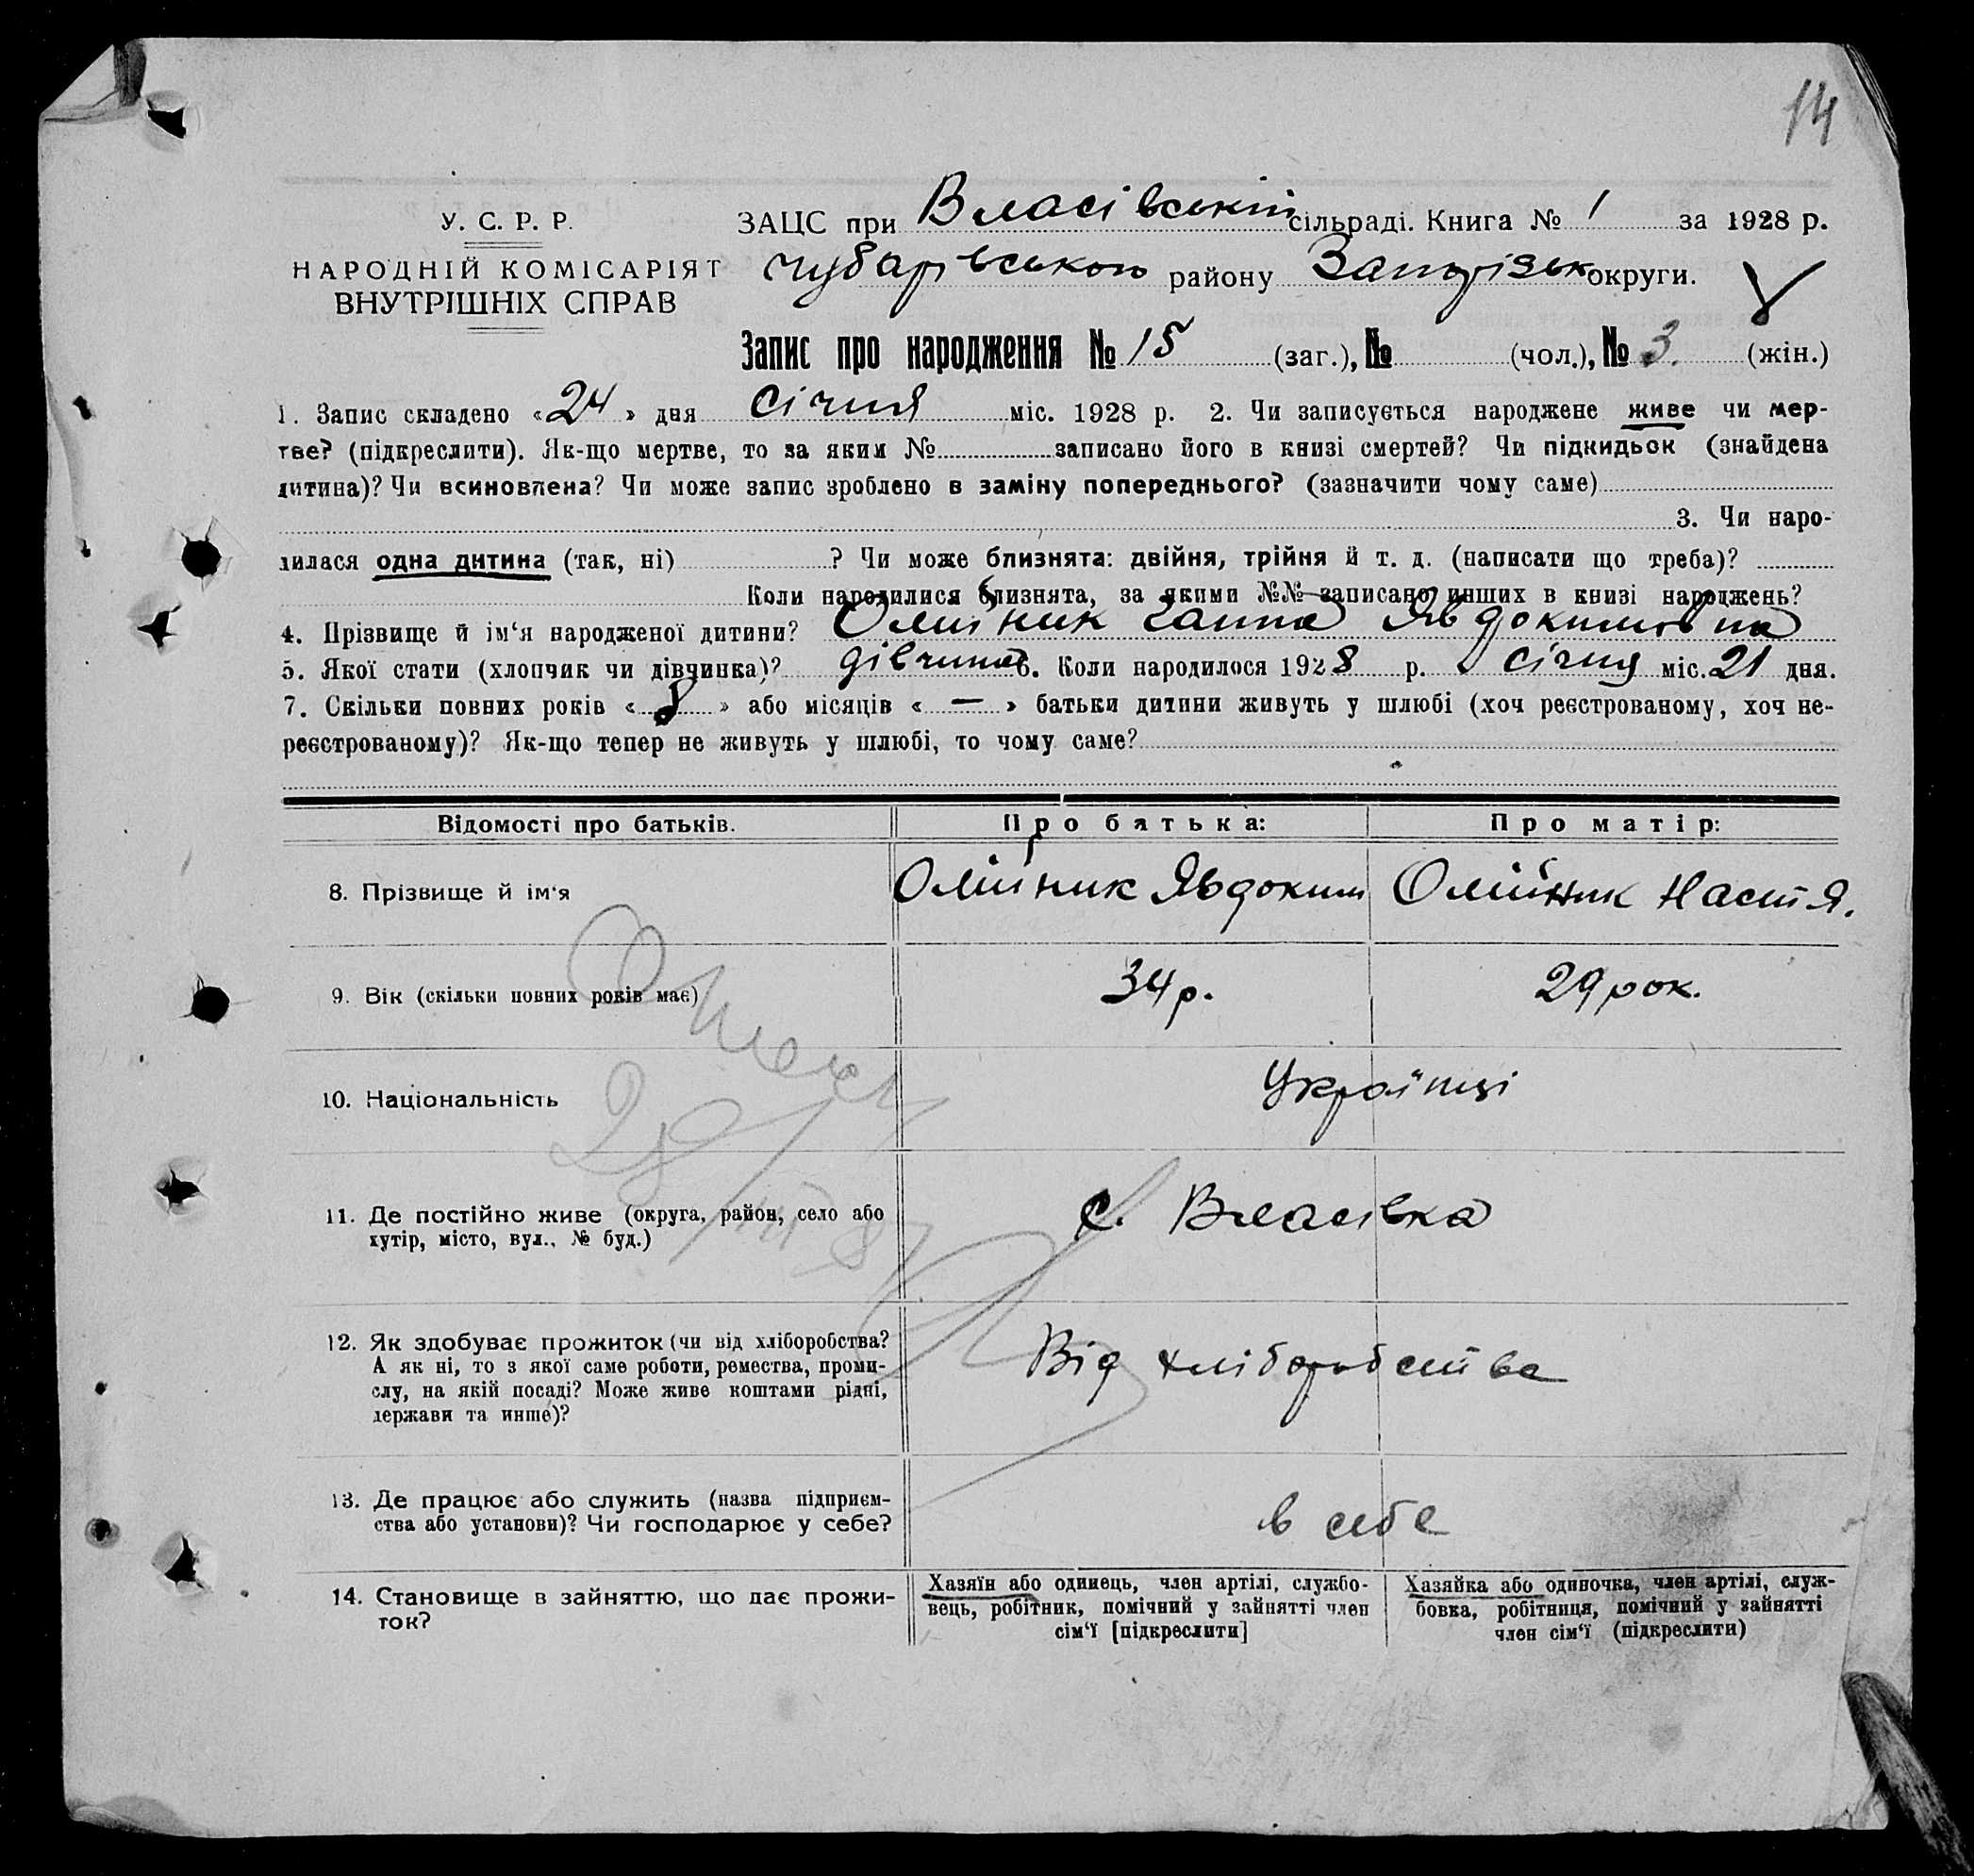 14
У. С. Р. Р.
НАРОДНІЙ КОМІСАРІЯТ
ВНУТРІШНІХ СПРАВ
ЗАЦС при Власівській сільраді. Книга № 1 за 1928 р.
Чубарівського району Запорізьк округи.
Запис про народження № 15 (заг.), № (чол.), № 3. (жін.)
1. Запис складено «24» дня Січня міс. 1928 р. 2. Чи записується народжене живе чи мер-
тве? (підкреслити). Як-що мертве, то за яким № записано його в книзі смертей? Чи підкидьок (знайдена
дитина)? Чи всиновлена? Чи може запис зроблено в заміну попереднього? (зазначити чому саме)
3. Чи наро-
дилася одна дитина (так, ні) ? Чи може близнята: двійня, трійня й т. д. (написати що треба)?
Коли народилися близнята, за якими №№ записано инших в книзі народжень?
4. Прізвище й ім‘я народженої дитини? Олійник Ганна Явдокимовна
5. Якої стати (хлопчик чи дівчинка)? дівчина 6. Коли народилося 1928 р. січня міс. 21 дня.
7. Скільки повних років «8» або місяців «—» батьки дитини живуть у шлюбі (хоч реєстрованому, хоч не-
реєстрованому)? Як-що тепер не живуть у шлюбі, то чому саме?
Відомості про батьків. Про батька: Про матір:
8. Прізвище й ім‘я Олійник Явдоким Олійник Настя.
9. Вік (скільки повних років має) 34 р. 29 рок.
10. Національність Українці
11. Де постійно живе (округа, район, село або
хутір, місто, вул., № буд.) с. Власівка
12. Як здобуває прожиток (чи від хліборобства?
А як ні, то з якої саме роботи, ремества, проми-
слу, на якій посаді? Може живе коштами рідні,
держави та инше)? Від хліборобства
13. Де працює або служить (назва підприєм-
ства або установи)? Чи господарює у себе? в себе
14. Становище в зайняттю, що дає прожи-
ток?
Хазяїн або одинець, член артілі, службо-
вець, робітник, помічний у зайнятті член
сім‘ї [підкреслити]
Хазяйка або одиночка, член артілі, служ-
бовка, робітниця, помічний у зайнятті
член сім‘ї (підкреслити)